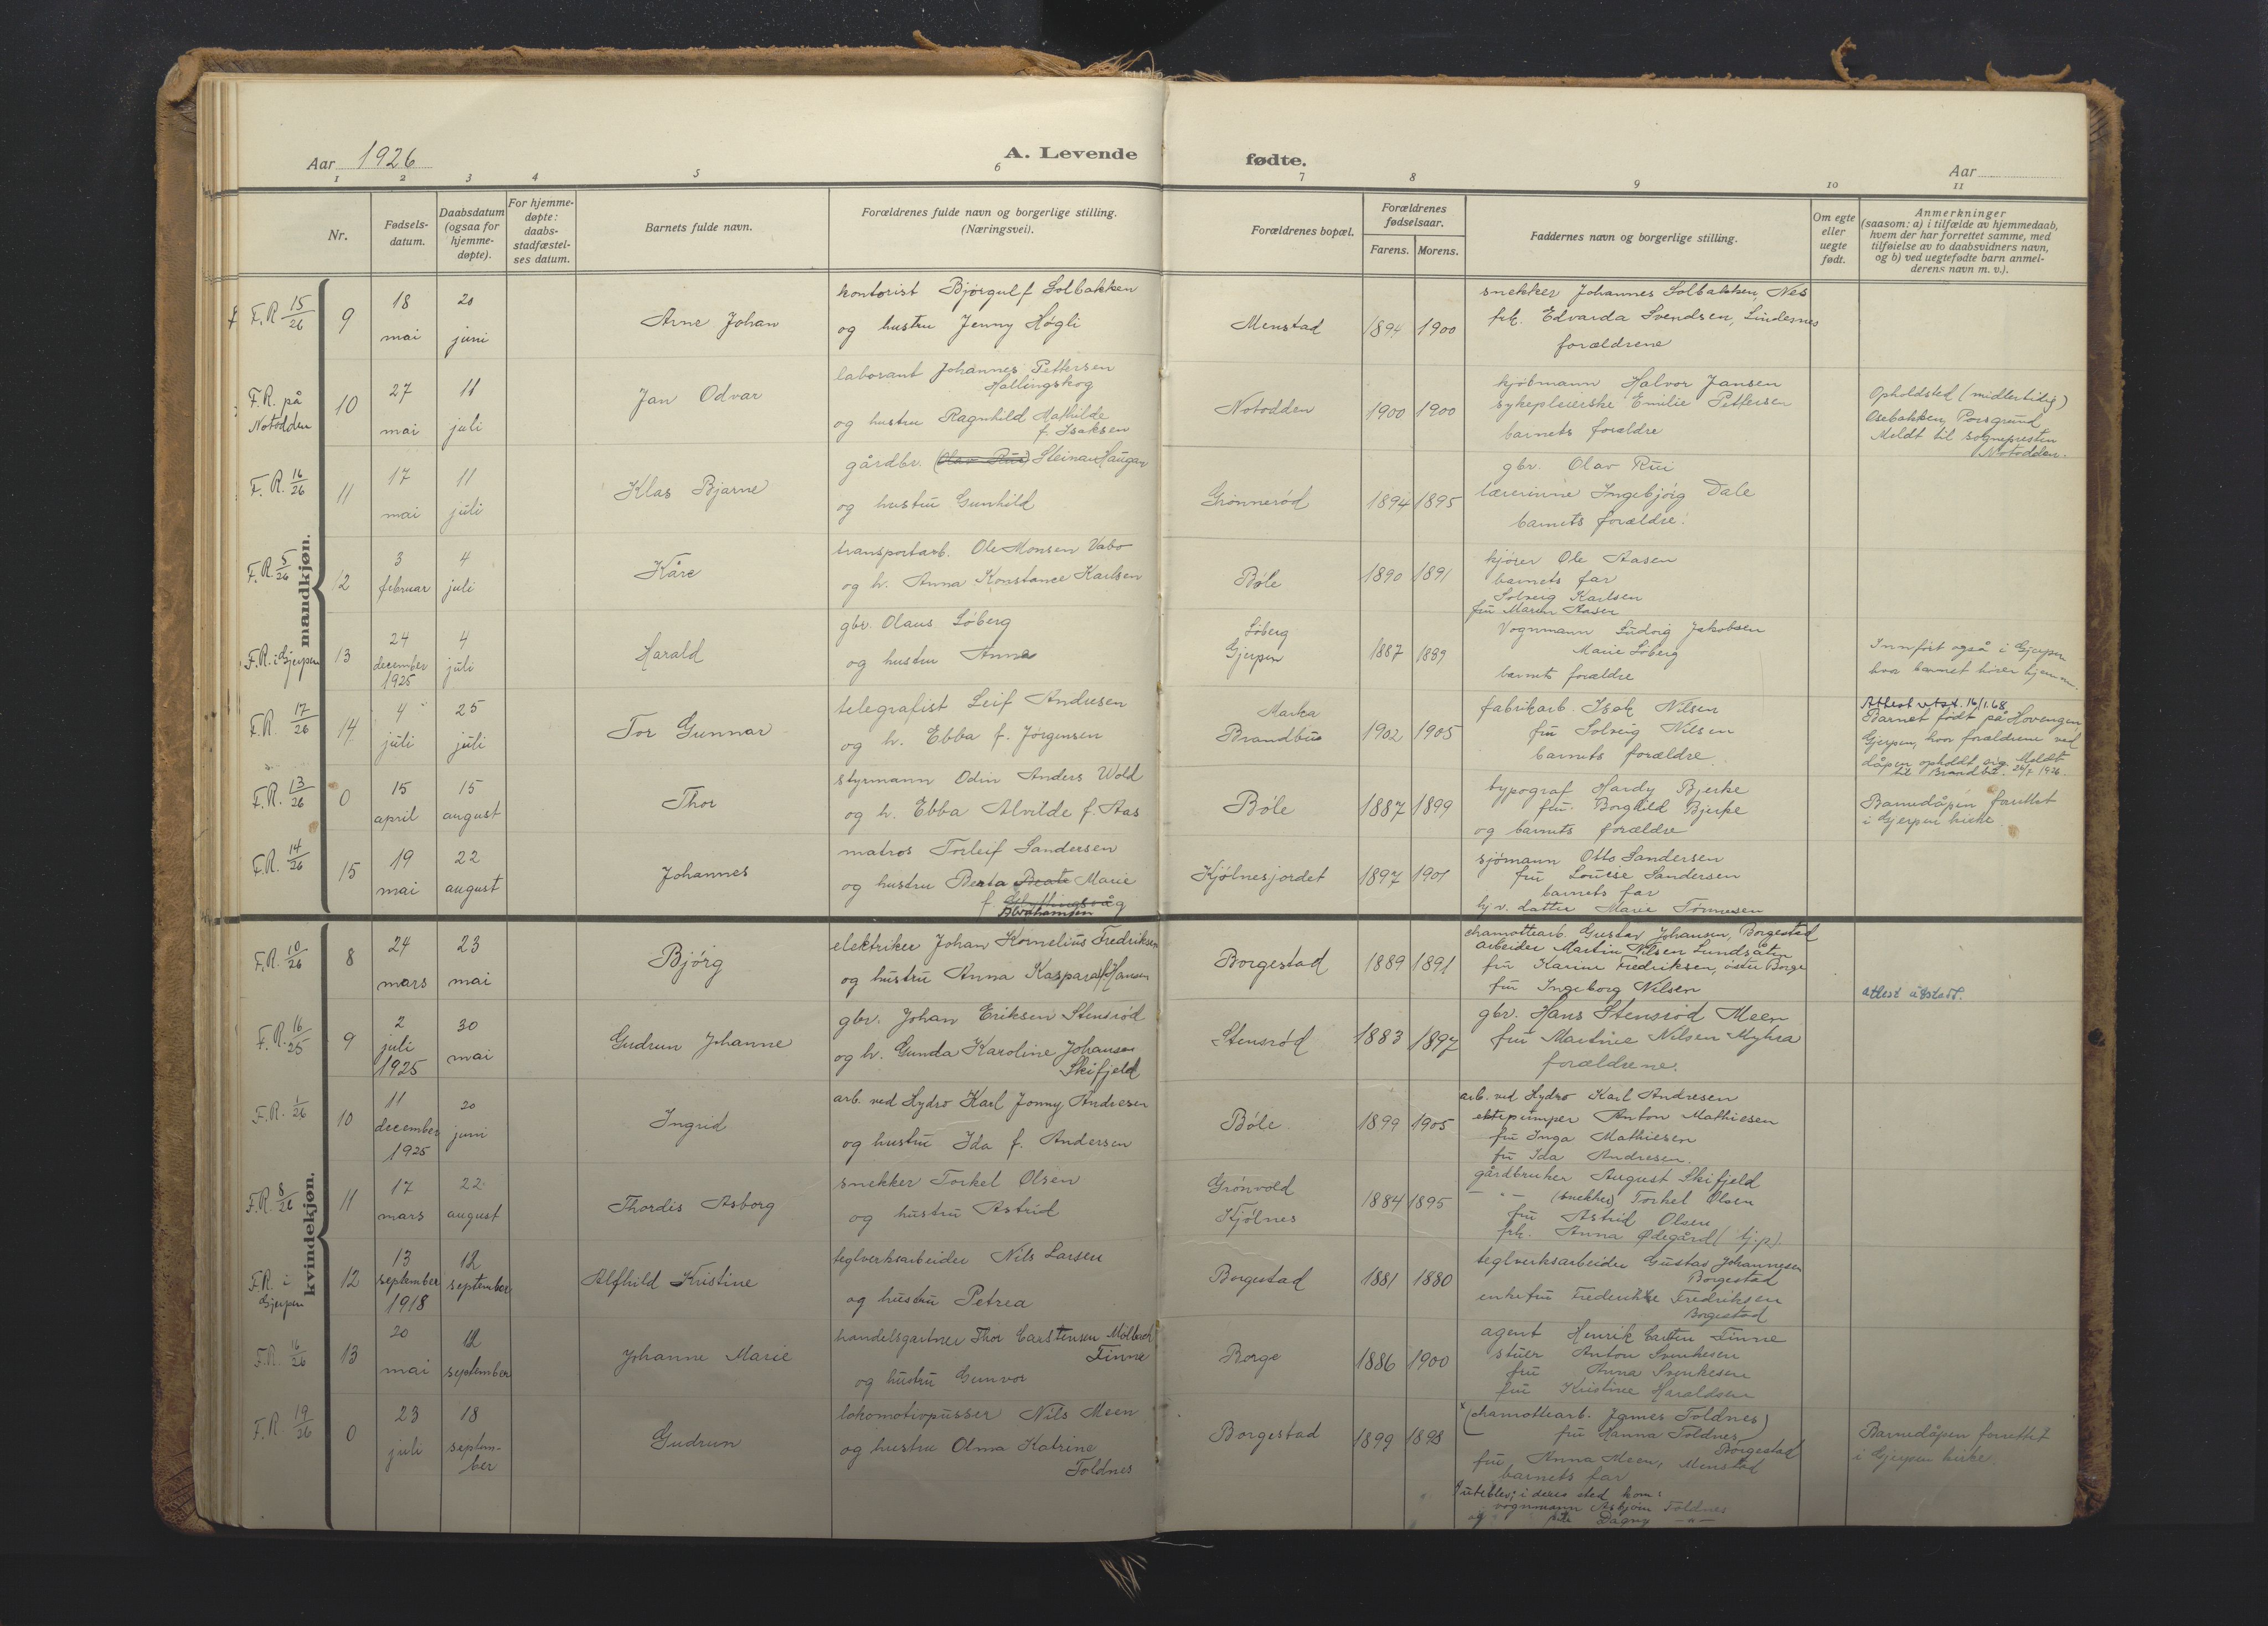 Aar 1926
A. Levende
fødte.
Aar
1 2 3 4 5 6 7 8 9 10 11
Nr.
Fødsels-
datum.
Daabsdatum
(ogsaa for
hjemme-
døpte).
For hjemme-
døpte:
daabs-
stadfæstel-
ses datum.
Barnets fulde navn.
Forældrenes fulde navn og borgerlige stilling.
(Næringsvei).
Forældrenes bopæl.
Forældrenes
fødselsaar.
Farens. Morens.
Faddernes navn og borgerlige stilling.
Om egte
eller
uegte
født.
Anmerkninger
(saasom: a) i tilfælde av hjemmedaab,
hvem der har forrettet samme, med
tilføielse av to daabsvidners navn,
og b) ved uegtefødte barn anmel-
derens navn m. v.).
mandkjøn.
F.R. 15/26
9
18
mai
20
juni
Arne Johan
kontorist Bjørgulf Solbakken
og hustru Jenny Høgli
Menstad
1894 1900
snekker Johannes Solbakken, Nes
frk. Edvarda Svendsen, Lindesnes
forældrene
F.R. på
Notodden
10
27
mai
11
juli
Jan Odvar
laborant Johannes Pettersen
Hallingskog
og hustru Ragnhild Mathilde
f. Isaksen
Notodden
1900 1900
kjøbmann Halvor Jansen
sykepleierske Emilie Pettersen
barnets forældre
Opholdsted (midlertidig)
Osebakken, Porsgrund
Meldt til sognepresten
Notodden.
F.R. 16/26
11
17
mai
11
juli
Klas Bjarne
gårdbr. (Olav Rui) Steinar Haugar
og hustru Gunhild
Grønnerød
1894 1895
gbr. Olav Rui
lærerinne Ingebjørg Dale
barnets forældre.
F.R. 5/26
12
3
februar
4
juli
Kåre
transportarb. Ole Monsen Vabo
og h. Anna Konstance Karlsen
Bøle
1890 1891
kjører Ole Aasen
barnets far
Solveig Karlsen
fru Maren Aasen
F.R. i Gjerpen
13
24
december
1925
4
juli
Harald
gbr. Olaus Løberg
og hustru Anna
Løberg
Gjerpen
1887 1889
Vognmann Ludvig Jakobsen
Marie Løberg
barnets forældre
Innført også i Gjerpen
hvor barnet hører hjemme.
F.R. 17/26
14
4
juli
25
juli
Tor Gunnar
telegrafist Leif Andresen
og h. Ebba f. Jørgensen
Marka
Brandbu
1902 1905
fabrikarb. Isak Nilsen
fru Solveig Nilsen
barnets forældre.
Attest utst. 16/1.68
Barnet født på Hovengen
Gjerpen, hvor forældrene ved
dåpen opholdt sig. Meldt
til Brandbu. 26/7 1926.
F.R. 13/26
0
15
april
15
august
Thor
styrmann Odin Anders Wold
og h. Ebba Alvilde f. Aas
Bøle
1887 1899
typograf Hardy Bjerke
fru Borghild Bjerke
og barnets forældre
Barnedåpen forettet
i Gjerpen kirke
F.R. 14/26
15
19
mai
22
august
Johannes
matros Torleif Sandersen
og hustru Berta Beate Marie
f.
Abrahamsen
Kjølnesjordet
1897 1901
sjømann Otto Sandersen
fru Louise Sandersen
barnets far
hj.v. datter Marie Tønnesen
kvindekjøn.
F.R. 10/26
8
24
mars
23
mai
Bjørg
elektriker Johan Kornelius Fredriksen
og hustru Anna Kaspara f. Hansen
Borgestad
1889 1891
chamottearb. Gustav Johansen, Borgestad
arbeider Martin Nilsen Lundsåsen
fru Karine Fredriksen, østre Borge
fru Ingeborg Nilsen
attest utstedt.
F.R. 16/25
9
2
juli
1925
30
mai
Gudrun Johanne
gbr. Johan Eriksen Stensrød
og h. Gunda Karoline Johansen
Skifjeld
Stensrød
1883 1897
gbr. Hans Stensrød Meen
fru Martine Nilsen Myhra
forældrene.
F.R. 1/26
10
11
december
1925
20
juni
Ingrid
arb. ved Hydro Karl Jonny Andresen
og hustru Ida f. Andersen
Bøle.
1899 1905
arb. ved Hydro Karl Andresen
pumper Anton Mathiesen
fru Inga Mathiesen
fru Ida Andresen.
F.R. 8/26
11
17
mars
22
august
Thordis Asborg
snekker Torkel Olsen
og hustru Astrid
Grønvold
Kjølnes
1884 1895
gårdbruker August Skifjeld
— " — (snekker) Torkel Olsen
fru Astrid Olsen
frk. Anna Ødegård (tj.p.)
F.R. i
Gjerpen
12
13
september
1918
12
september
Alfhild Kristine
teglverksarbeider Nils Larsen
og hustru Petrea
Borgestad
1881 1880
teglverksarbeider Gustav Johannesen
Borgestad
enkefru Frederikke Fredriksen
Borgestad
F.R. 16/26
13
20
mai
12
september
Johanne Marie
handelsgartner Thor Carstensen Møllbach
Finne
og hustru Gunvor
Borge
1886 1900
agent Henrik Carsten Finne
stuer Anton Svenkesen
fru Anna Svenkesen
fru Kristine Haraldsen
F.R. 19/26
0
23
juli
18
septem-
ber
Gudrun
lokomotivpusser Nils Meen
og hustru Olma Katrine
Toldnes
Borgestad
1899 1898
(chamottearb. James Toldnes)
fru Hanna Toldnes
Borgestad
fru Anna Meen, Menstad
barnets far
uteblev; i deres sted kom:
vognmann Asbjørn Toldnes
og frk. Dagny — " —
Barnedåpen forrettet
i Gjerpen kirke.